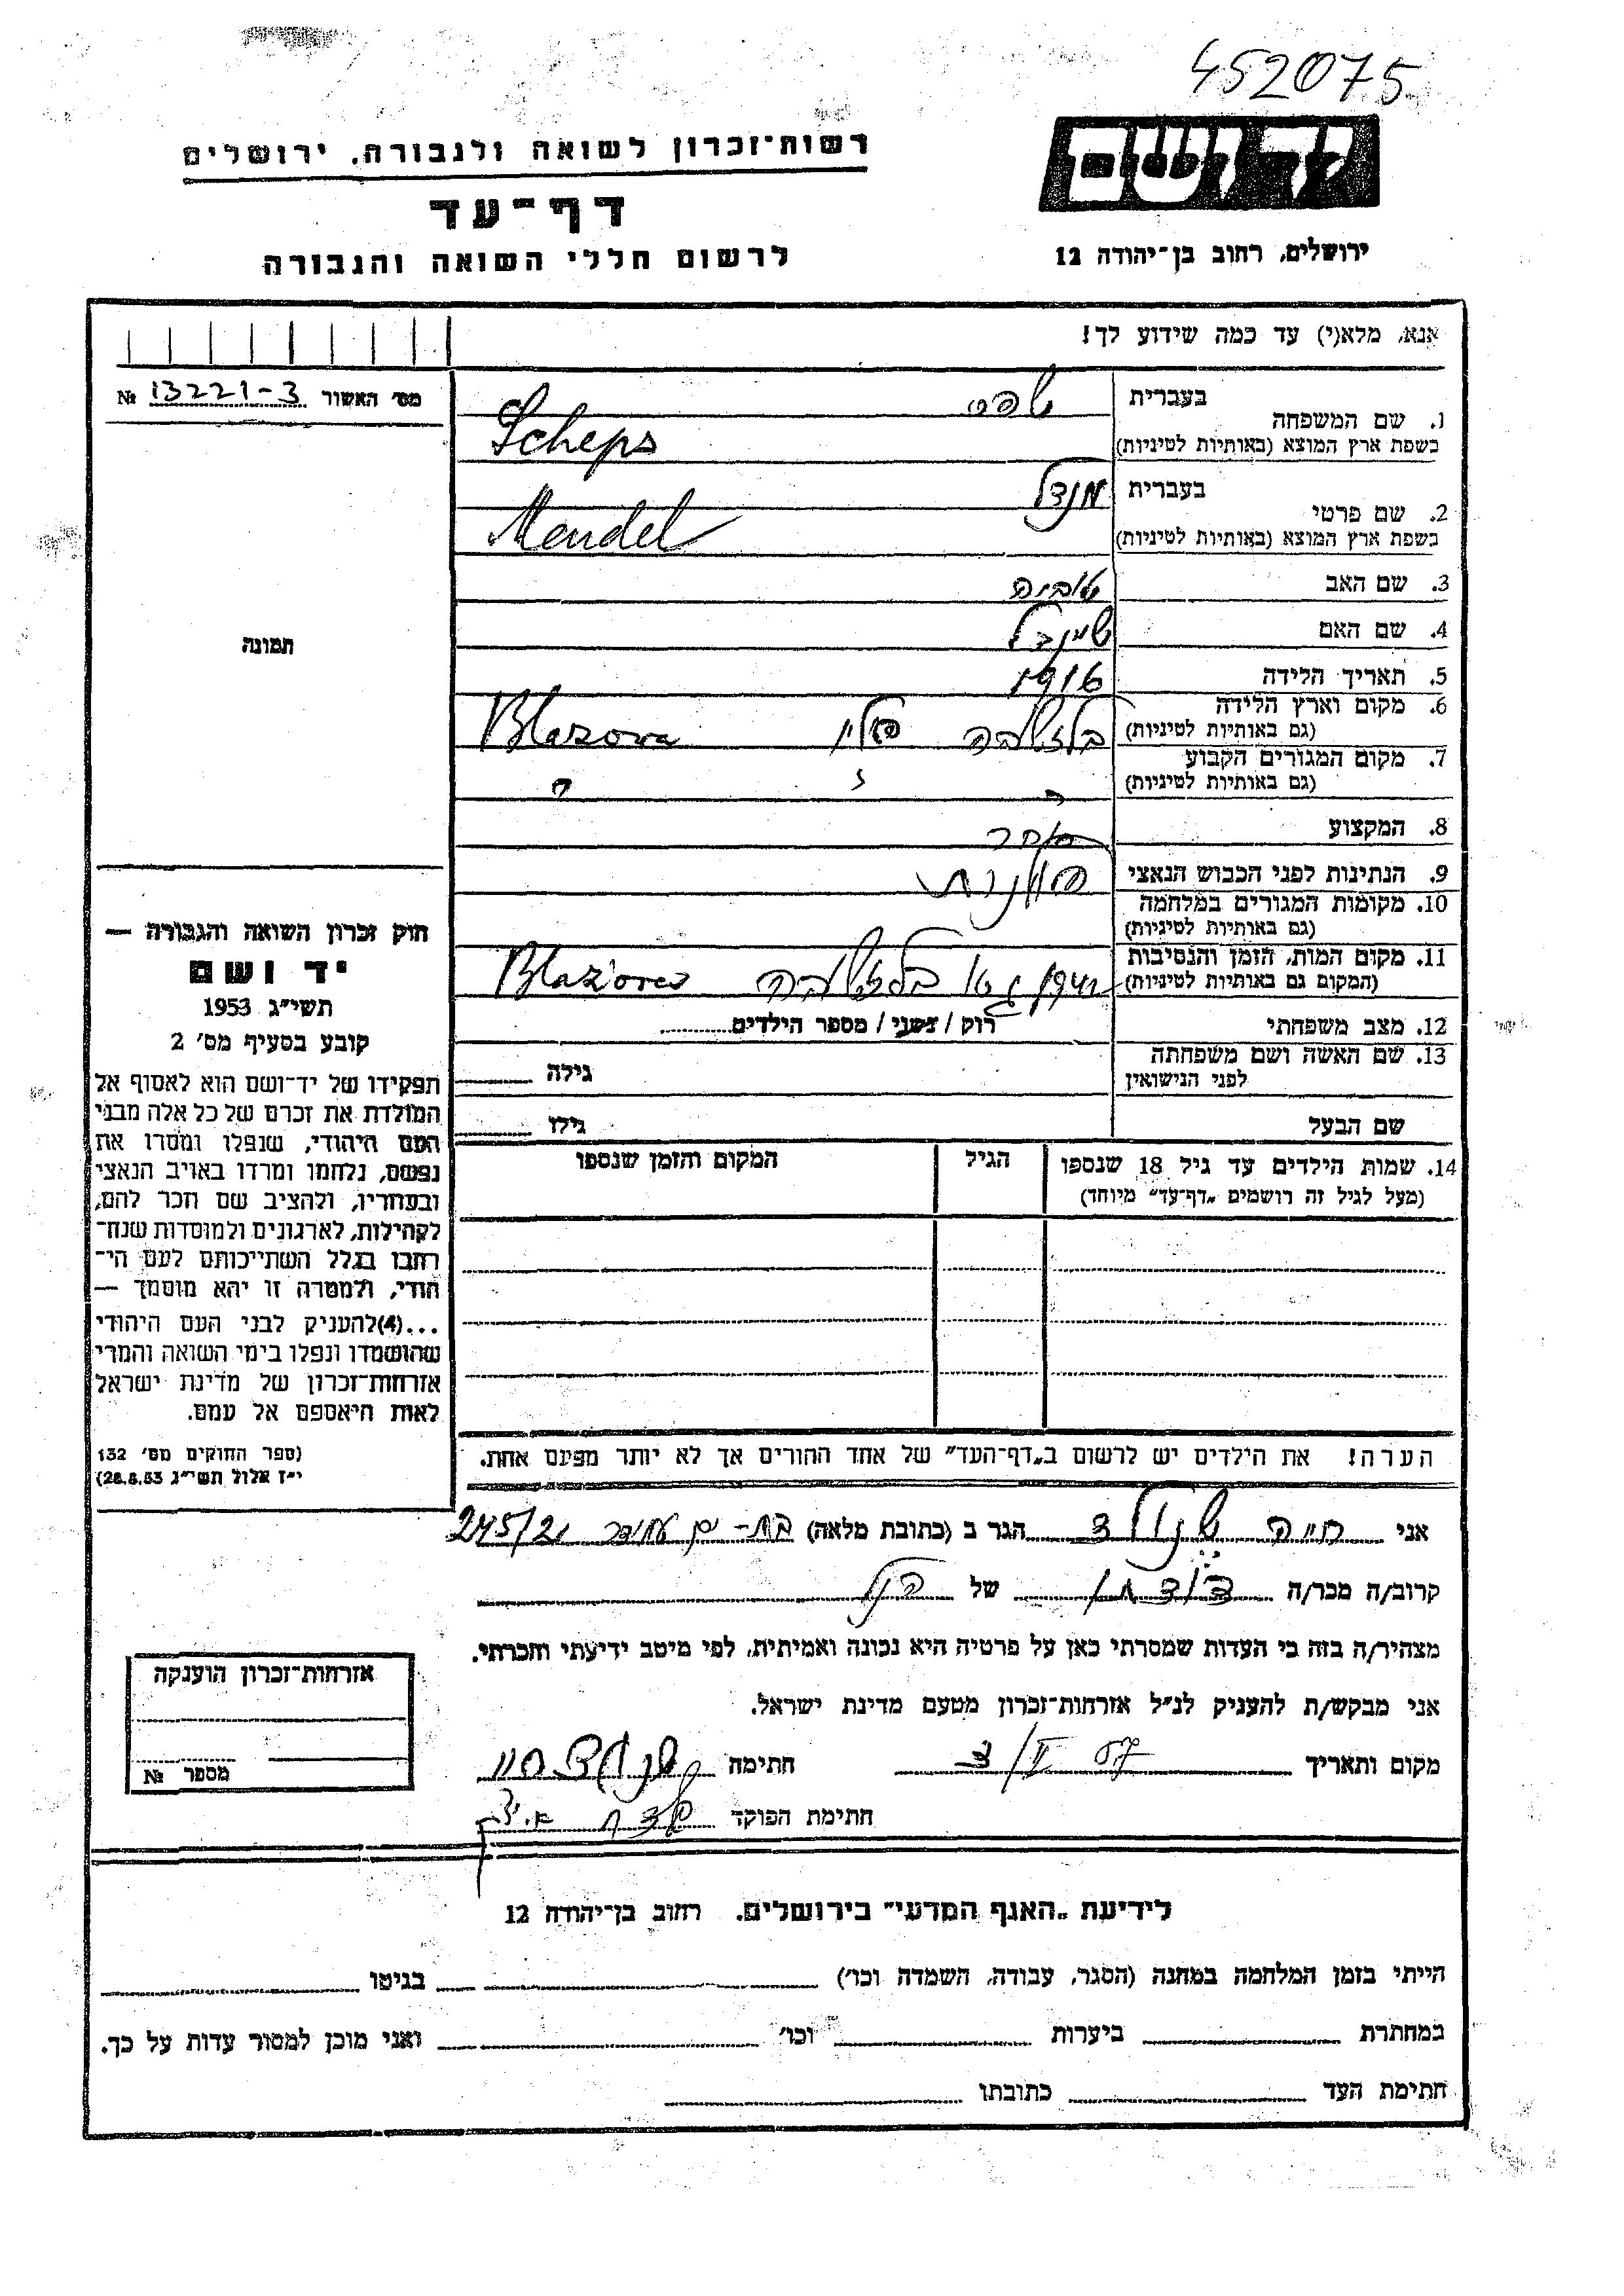 452075
יד ושם
ירושלים, רחוב בן־יהודה 12
רשות־זכרון לשואה ולגבורה, ירושלים
דף־עד
לרשום חללי השואה והגבורה
אנא, מלא(י) עד כמה שידוע לך!
מס׳ האשור 13221-3 №
תמונה
1. שם המשפחה
בעברית שפס
בשפת ארץ המוצא (באותיות לטיניות) Scheps
2. שם פרטי
בעברית מנדל
בשפת ארץ המוצא (באותיות לטיניות) Mendel
3. שם האב טוביה
4. שם האם שיינדל
5. תאריך הלידה 1916
6. מקום וארץ הלידה
(גם באותיות לטיניות) בלזובה פולין Blazowa
7. מקום המגורים הקבוע
(גם באותיות לטיניות)
8. המקצוע סוחר
9. הנתינות לפני הכבוש הנאצי פולנית
10. מקומות המגורים במלחמה
(גם באותיות לטיניות)
11. מקום המות, הזמן והנסיבות
(המקום גם באותיות לטיניות) גטו
12. מצב משפחתי רוק / נשוי / מספר הילדים
13. שם האשה ושם משפחתה
לפני הנישואין גילה
שם הבעל גילו
14. שמות הילדים עד גיל 18 שנספו הגיל המקום והזמן שנספו
(מעל לגיל זה רושמים „דף־עד״ מיוחד)
הערה! את הילדים יש לרשום ב„דף־העד״ של אחד ההורים אך לא יותר מפעם אחת.
חוק זכרון השואה והגבורה —
יד ושם
תשי״ג 1953
קובע בסעיף מס׳ 2
תפקידו של יד־ושם הוא לאסוף אל
המולדת את זכרם של כל אלה מבני
העם היהודי, שנפלו ומסרו את
נפשם, נלחמו ומרדו באויב הנאצי
ובעוזריו, ולהציב שם וזכר להם,
לקהילות, לארגונים ולמוסדות שנח־
רבו בגלל השתייכותם לעם הי־
הודי, ולמטרה זו יהא מוסמך —
...(4)להעניק לבני העם היהודי
שהושמדו ונפלו בימי השואה והמרי
אזרחות־זכרון של מדינת ישראל
לאות היאספם אל עמם.
(ספר החוקים מס׳ 132
י״ז אלול תשי״ג 28.8.53)
אני חיה הגר ב (כתובת מלאה) בת-ים 245/21
קרוב/ה מכר/ה של הנ״ל
מצהיר/ה בזה כי העדות שמסרתי כאן על פרטיה היא נכונה ואמיתית, לפי מיטב ידיעתי והכרתי.
אני מבקש/ת להעניק לנ״ל אזרחות־זכרון מטעם מדינת ישראל.
מקום ותאריך חתימה
חתימת הפוקד
אזרחות־זכרון הוענקה
מספר №
לידיעת „האגף המדעי״ בירושלים. רחוב בן־יהודה 12
הייתי בזמן המלחמה במחנה (הסגר, עבודה, השמדה וכו׳) בגיטו
במחתרת ביערות וכו׳ ואני מוכן למסור עדות על כך.
חתימת העד כתובתו